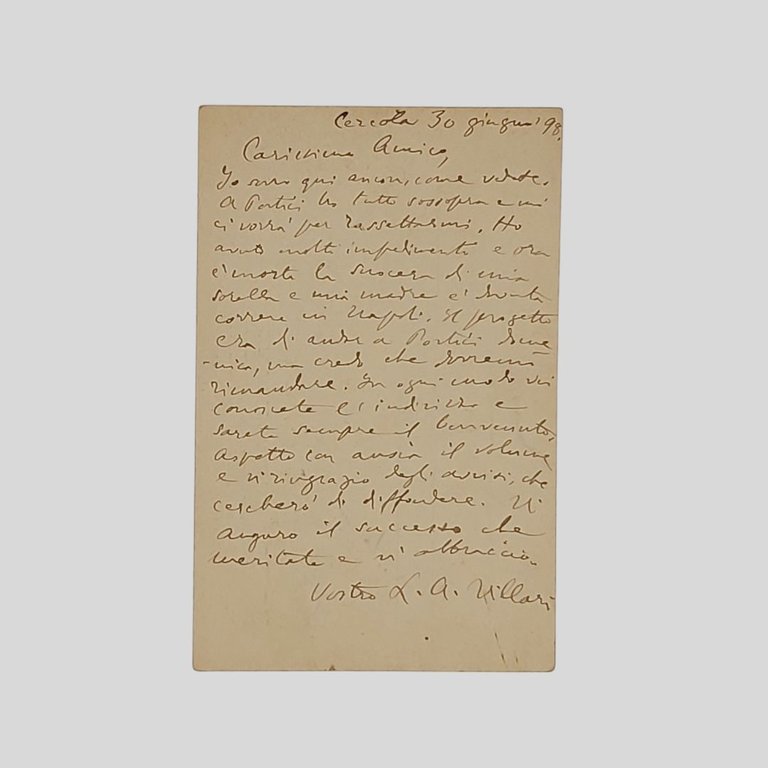 Cercola 30 giugno '98.
Carissimo Amico,
Io sono qui ancora, come vedete.
A Portici ho tutto sossopra e mi
ci vorrà per rassettarmi. Ho
avuto molti impedimenti e ora
è morta la suocera di mia
sorella e mia madre è dovuta
correre in Napoli. Il progetto
era di andare a Portici dome
-nica, ma credo che dovremo
rimandare. In ogni modo voi
conoscete l'indirizzo e
sarete sempre il benvenuto.
Aspetto con ansia il volume
e vi ringrazio degli avvisi, che
cercherò di diffondere. Vi
auguro il successo che
meritate e vi abbraccio.
Vostro L. A. Villari